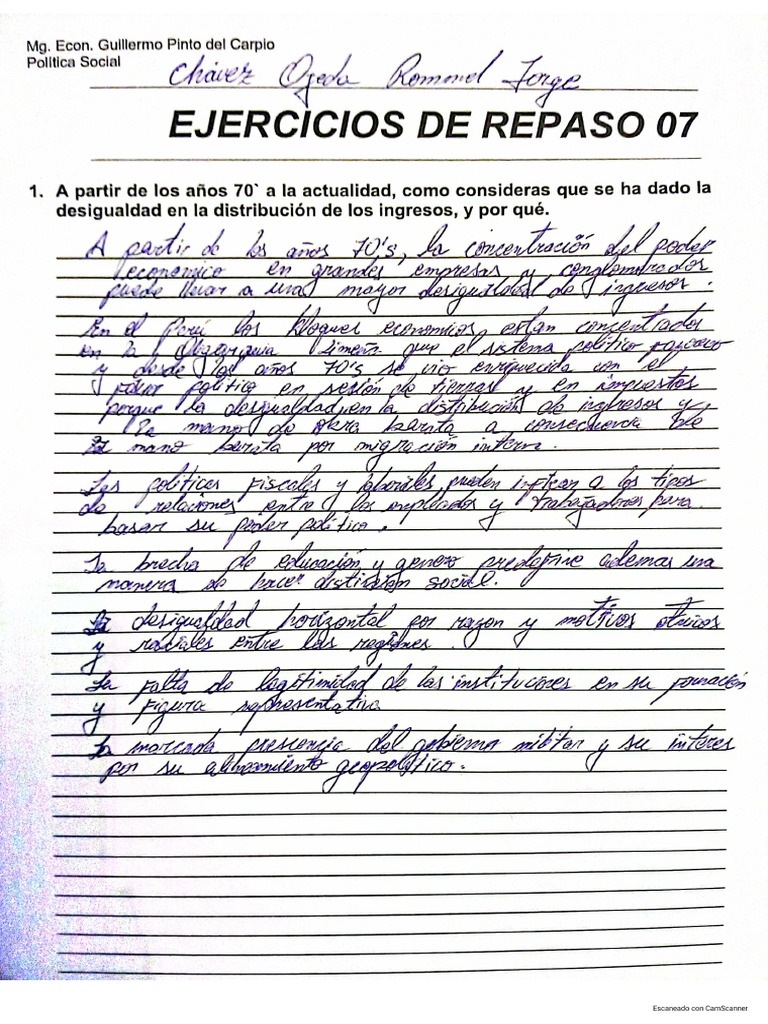 Mg. Econ. Guillermo Pinto del Carpio
Política Social
Chávez Ojeda Rommel Jorge
EJERCICIOS DE REPASO 07
1. A partir de los años 70` a la actualidad, como consideras que se ha dado la
desigualdad en la distribución de los ingresos, y por qué.
A partir de los años 70's, la concentración del poder
economico en grandes empresas y conglomerados
puede llevar a una mayor desigualdad de ingresos.
En el Perú los bloques economicos, estan concentrados
en la Oligarquia Limeña que el sistema político
y desde los años 70's se vio enriquecida con el
poder politico en sesión de tierras y en impuestos
porque la desigualdad en la distribución de ingresos y
la mano de obra barata a consecuencia de
mano barata por migración interna.
Las politicas fiscales y laborales pueden a los tipos
de relaciones entre los empleados y trabajadores para
basar su poder político.
La brecha de educación y genero predefine ademas una
manera de hacer distinsion social.
La desigualdad horizontal por razon y motivos etnicos
y raciales entre las regiones.
La falta de legitimidad de las instituciones en su formación
y figura representativa
La marcada presencia del gobierno militar y su interes
por su geopolitico.
Escaneado con CamScanner